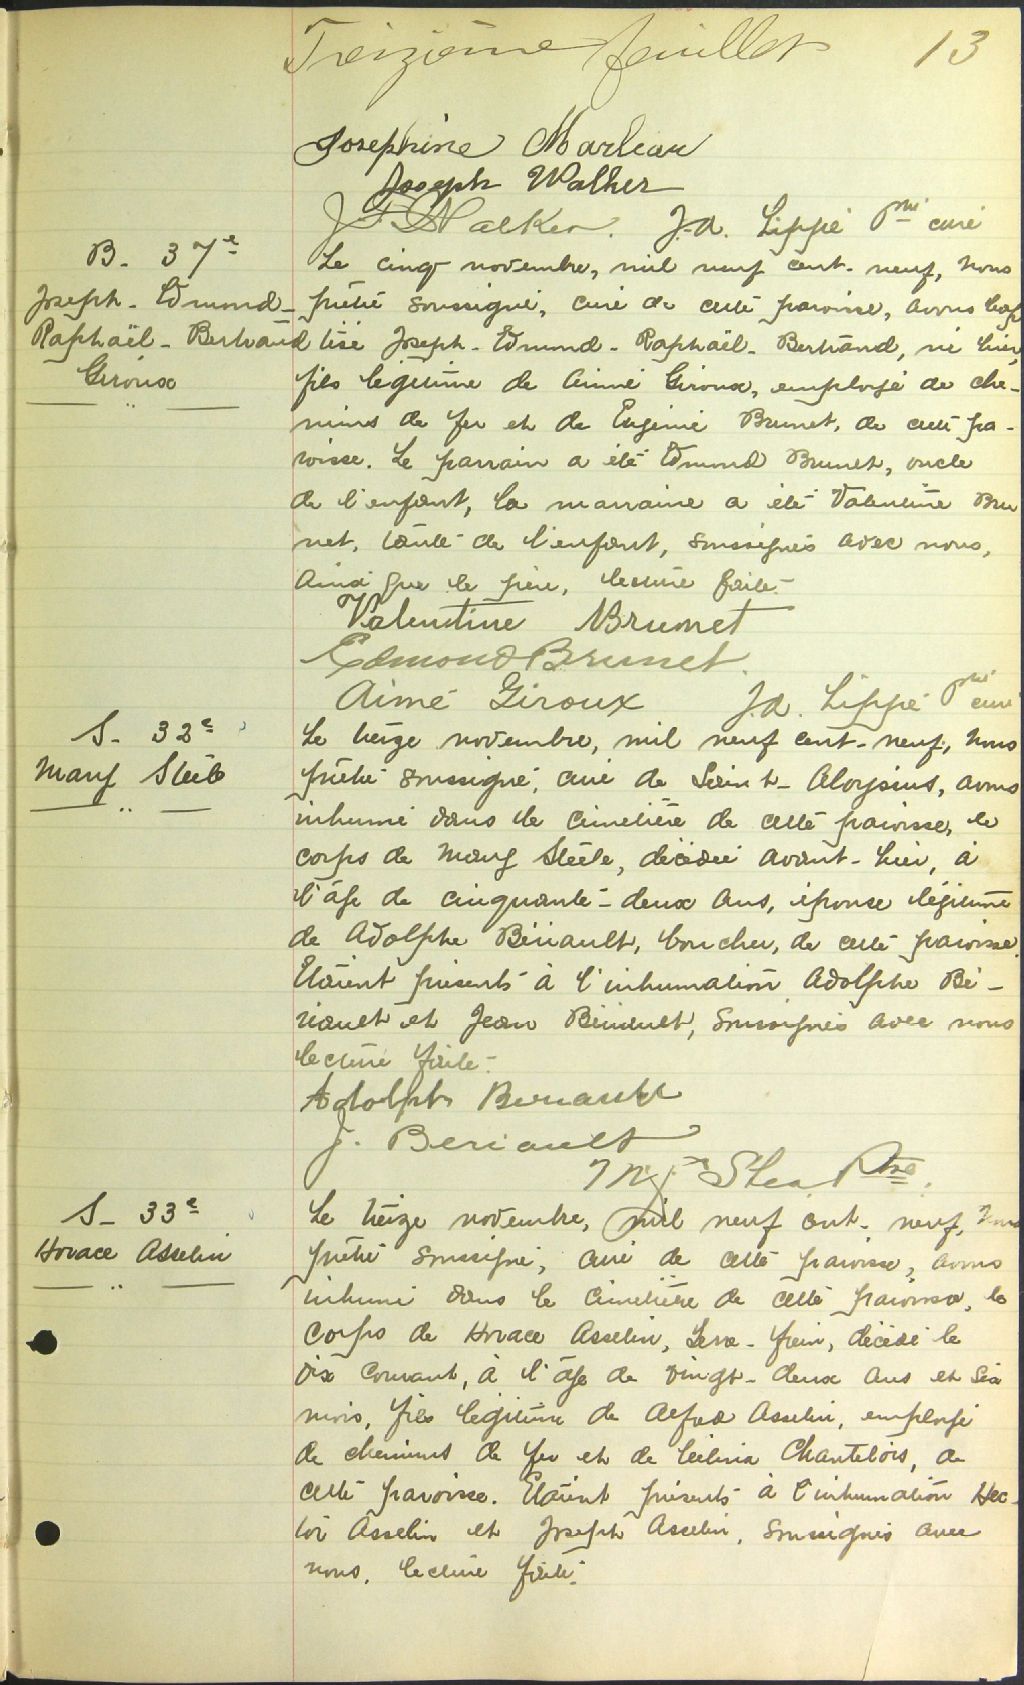 Treizième feuillet 13
Josephine Marleau
Joseph Walker
J. A. Lippé Ptre curé
B. 37e
Joseph-Edmond-
Raphaël-Bertrand
Giroux
Le cinq novembre, mil neuf cent-neuf, nous
prêtre soussigné, curé de cette paroisse, avons bap
tisé Joseph-Edmond-Raphaël-Bertrand, né hier,
fils légitime de Aimé Giroux, employé de che-
mins de fer et de Eugénie Brunet, de cette pa-
roisse. Le parrain a été Edmond Brunet, oncle
de l'enfant, la marraine a été Valentine Bru
net, tante de l'enfant, soussignés avec nous,
ainsi que le père, lecture faite.
Valentine Brunet
Edmond Brunet.
Aimé Giroux J. A. Lippé Ptre curé
S- 32e
Mary Steele
Le treize novembre, mil neuf cent-neuf, nous
prêtre soussigné, curé de Saint-Aloysius, avons
inhumé dans le cimetière de cette paroisse, le
corps de Mary Steele, décédée avant-hier, à
l'âge de cinquante-deux ans, épouse légitime
de Adolphe Bériault, boucher, de cette paroisse.
Etaient présents à l'inhumation Adolphe Bé-
riault et Jean Bériault, soussignés avec nous
lecture faite.
Adolph Beriault
J. Beriault
S- 33e
Horace Asselin
Le treize novembre, mil neuf cent-neuf, nous
prêtre soussigné, curé de cette paroisse, avons
inhumé dans le cimetière de cette paroisse, le
corps de Horace Asselin, serre-frein, décédé le
dix courant, à l'âge de vingt-deux ans et six
mois, fils légitime de Alfred Asselin, employé
de chemins de fer et de Célina Chantelois, de
cette paroisse. Etaient présents à l'inhumation Hec-
tor Asselin et Joseph Asselin, soussignés avec
nous, lecture faite.